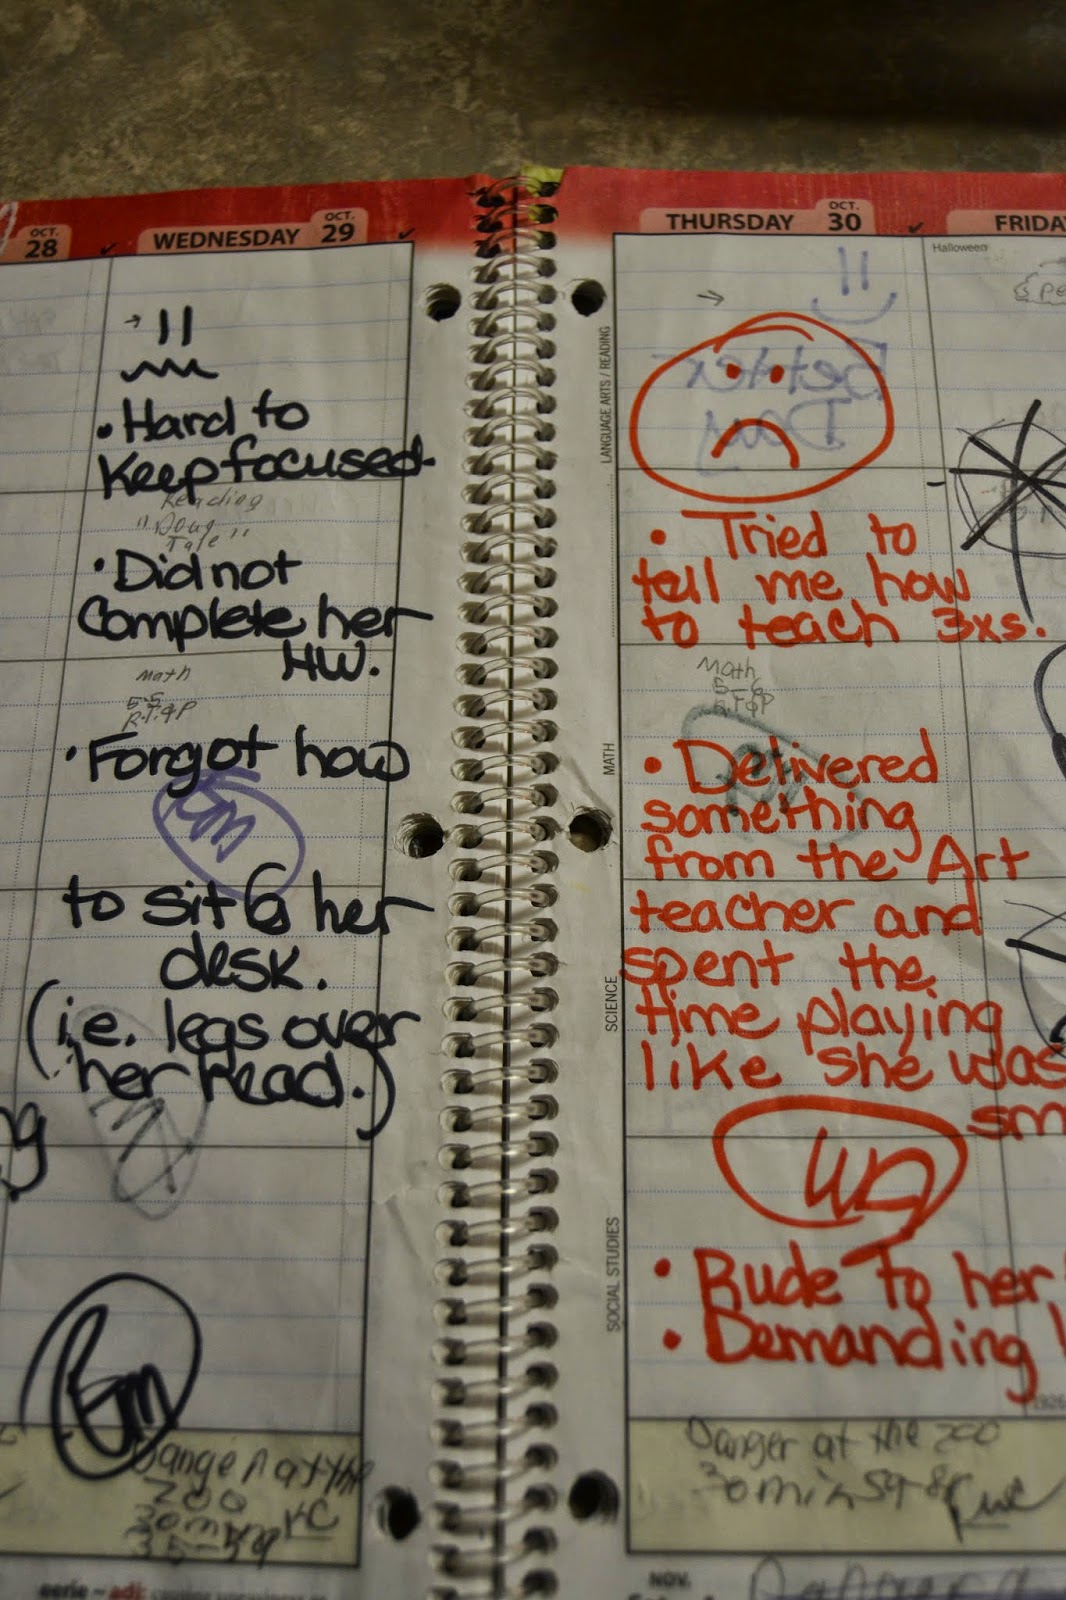 OCT.
28
WEDNESDAY
OCT.
29
• Hard to
Keep focused.
Reading
"Doug
Tale"
• Did not
Complete her
HW.
Math
5-5
R.T.&P
• Forgot how
to sit @ her
desk.
(i.e. legs over
her head.)
Danger at the
zoo
30 min
KC
THURSDAY
OCT.
30
LANGUAGE ARTS / READING
Better
Day
• Tried to
tell me how
to teach 3xs.
Math
5-6
R.T&P
MATH
• Delivered
something
from the Art
teacher and
spent the
time playing
like she was
sm
SCIENCE
SOCIAL STUDIES
• Rude to her
• Demanding
Danger at the zoo
30 min
NOV.
FRIDA
Halloween